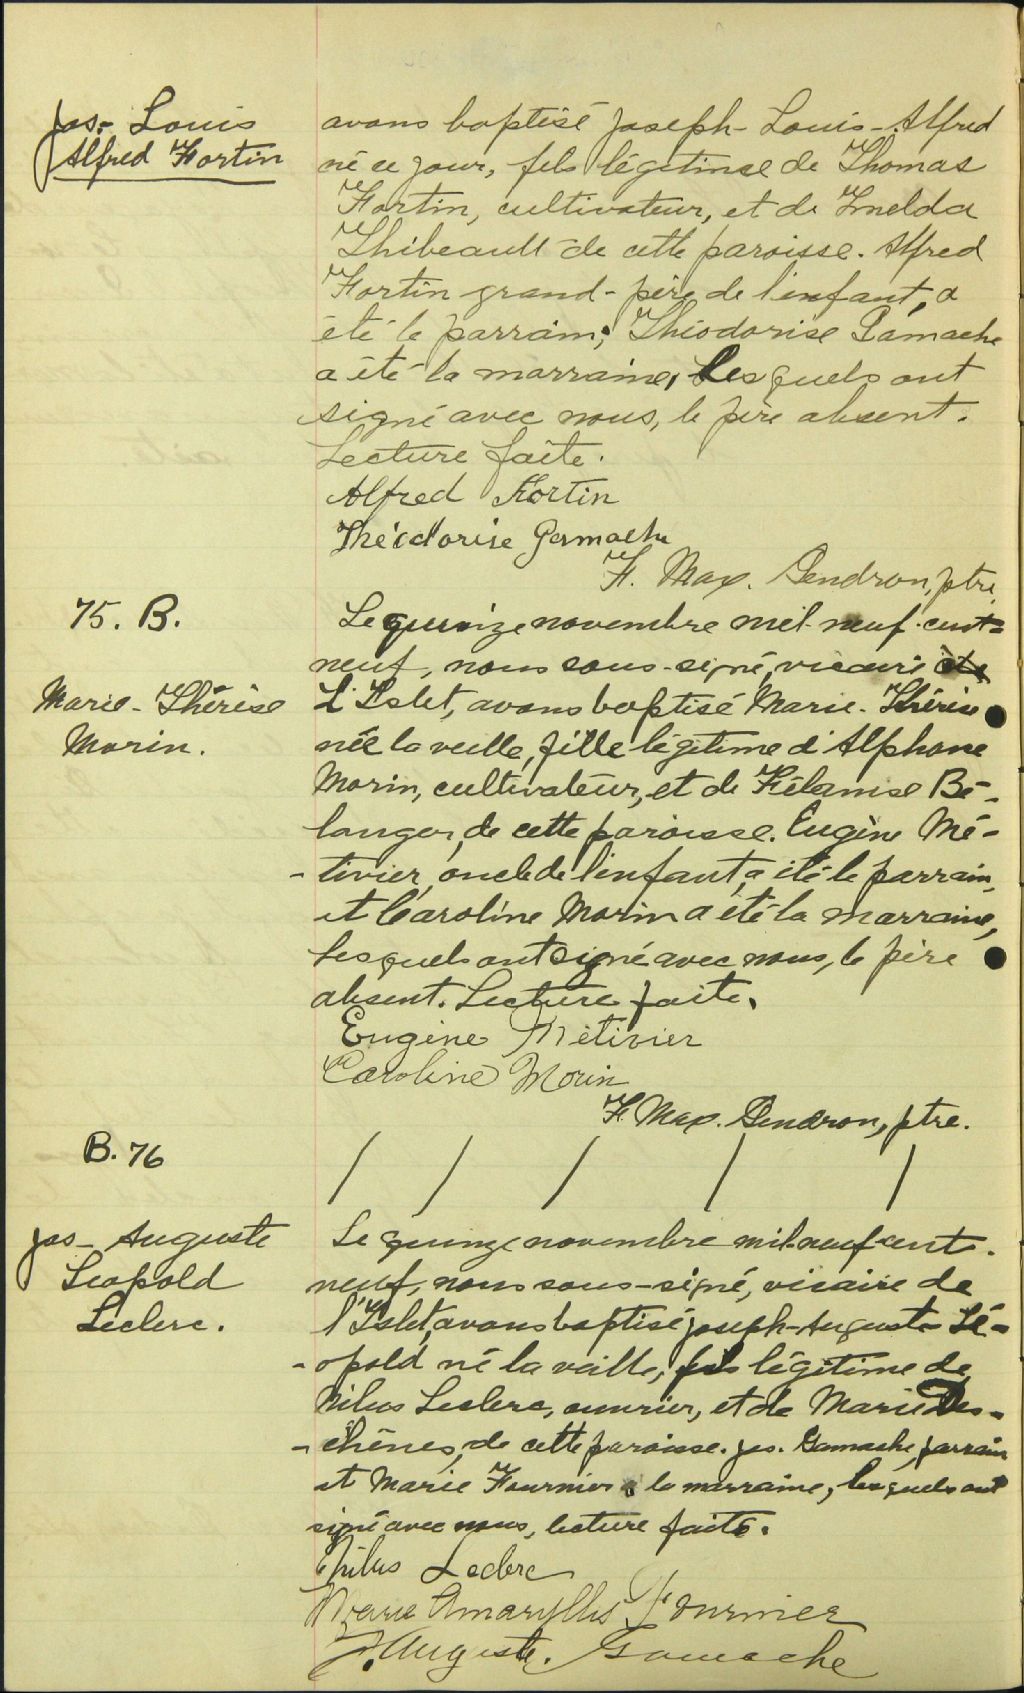 Jos. Louis
Alfred Fortin
avons baptisé Joseph-Louis-Alfred
né ce jour, fils légitime de Thomas
Fortin, cultivateur, et de Imelda
Thibeault de cette paroisse. Alfred
Fortin grand-père de l'enfant, a
été le parrain; Théodorise Gamache
a été la marraine, lesquels ont
signé avec nous, le père absent.
Lecture faite.
Alfred Fortin
Théodorise Gamache
F. Max. Gendron, ptre.
75. B.
Marie-Thérèse
Morin.
Le quinze novembre mil-neuf-cent-
neuf, nous sous-signé, vicaire de
L'Islet, avons baptisé Marie-Thérèse
née la veille, fille légitime d'Alphonse
Morin, cultivateur, et de Bé-
langer, de cette paroisse. Eugène Mé-
-tivier, oncle de l'enfant, a été le parrain,
et Caroline Morin a été la marraine,
lesquels ont signé avec nous, le père
absent. Lecture faite.
Eugène Métivier
Caroline Morin
F. Max. Gendron, ptre.
B. 76
Jos- Auguste
Leopold
Leclerc.
Le quinze novembre mil-neuf-cent-
neuf, nous sous-signé, vicaire de
l'Islet, avons baptisé Joseph-Auguste Lé-
-opold né la veille, fils légitime de
Nilus Leclerc, ouvrier, et de Marie Des-
-chênes, de cette paroisse. Jos. Gamache, parrain
et Marie Fournier la marraine, lesquels ont
signé avec nous, lecture faite.
Nilus Leclerc
Marie Amaryllis Fournier
J. Auguste. Gamache